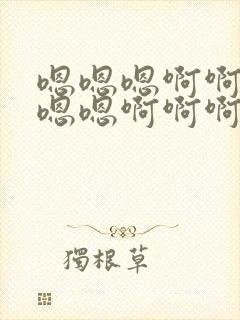 嗯嗯嗯啊啊
嗯嗯啊啊啊
獨根草